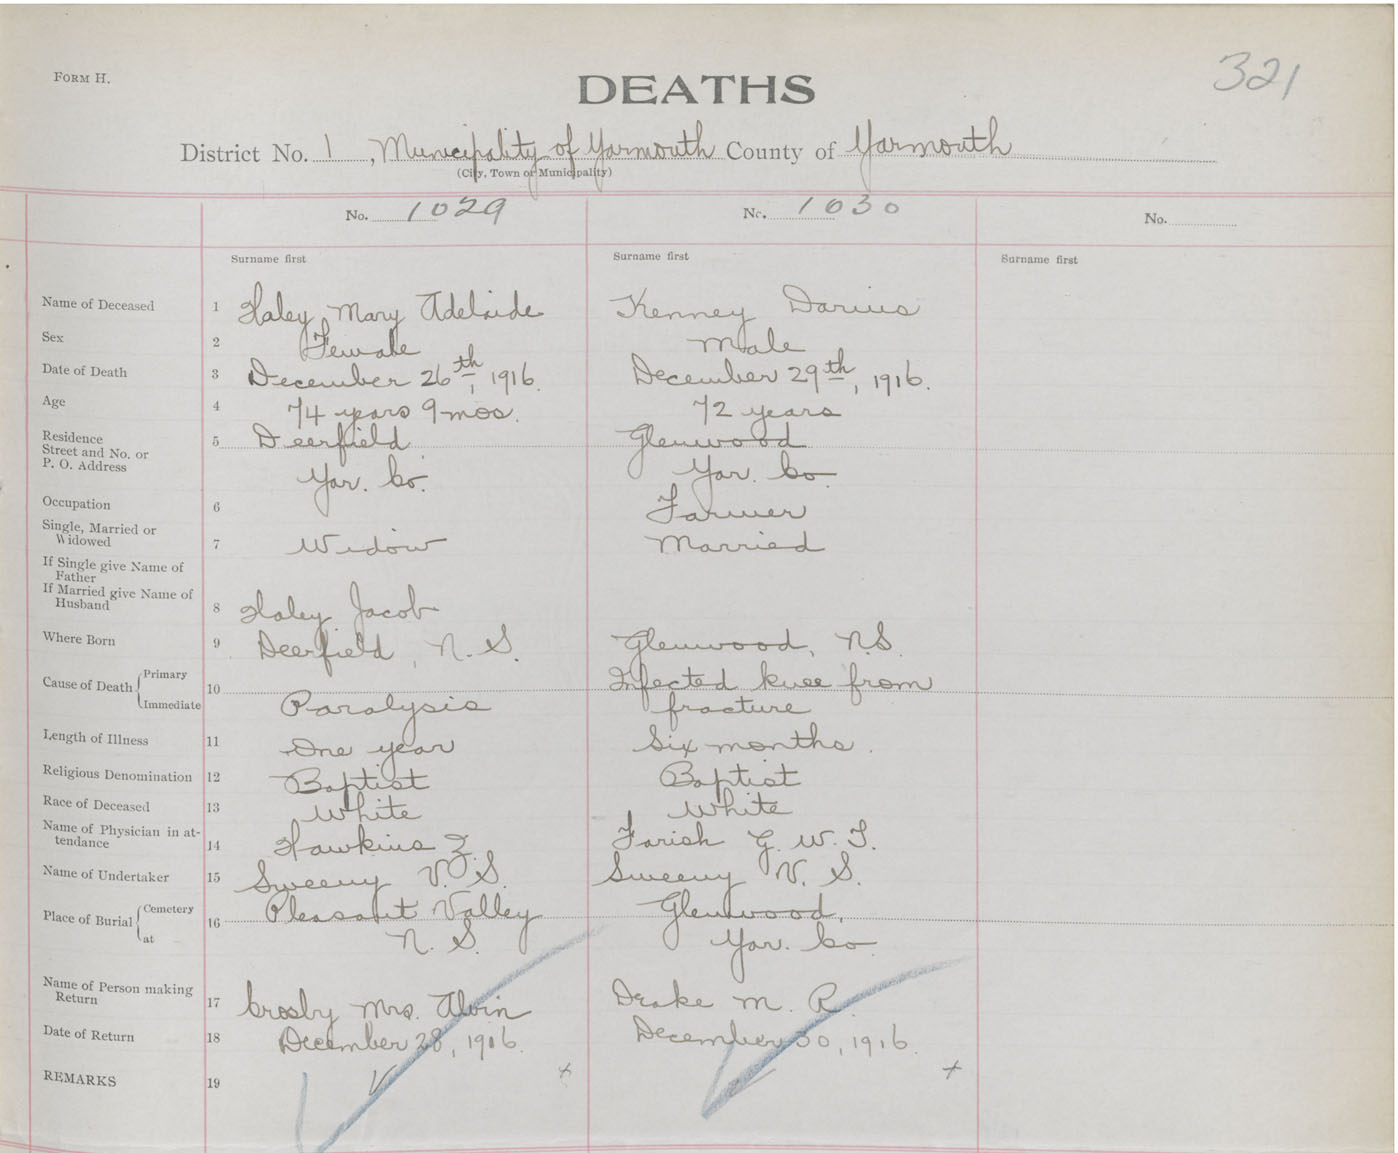 FORM H.
DEATHS
321
District No. 1, Municipality of Yarmouth County of Yarmouth
(City, Town or Municipality)
No. 1029 No. 1030 No.
Surname first Surname first Surname first
Name of Deceased 1 Haley Mary Adelaide Kenney Darius
Sex 2 Female Male
Date of Death 3 December 26th, 1916. December 29th, 1916.
Age 4 74 years 9 mos. 72 years
Residence 5 Deerfield Glenwood
Street and No. or
P. O. Address Yar. Co. Yar. Co.
Occupation 6 Farmer
Single, Married or
Widowed 7 Widow Married
If Single give Name of
Father
If Married give Name of
Husband 8 Haley Jacob
Where Born 9 Deerfield, N. S. Glenwood, N.S.
Cause of Death { Primary 10 Infected knee from
Immediate Paralysis fracture
Length of Illness 11 One year Six months.
Religious Denomination 12 Baptist Baptist
Race of Deceased 13 White White
Name of Physician in at-
tendance 14 Hawkins Z. Farish G. W. T.
Name of Undertaker 15 Sweeny V. S. Sweeny V. S.
Place of Burial { Cemetery 16 Pleasant Valley Glenwood,
at N. S. Yar. Co.
Name of Person making
Return 17 Crosby Mrs. Alvin Drake M. R.
Date of Return 18 December 28, 1916. December 30, 1916.
REMARKS 19 x x